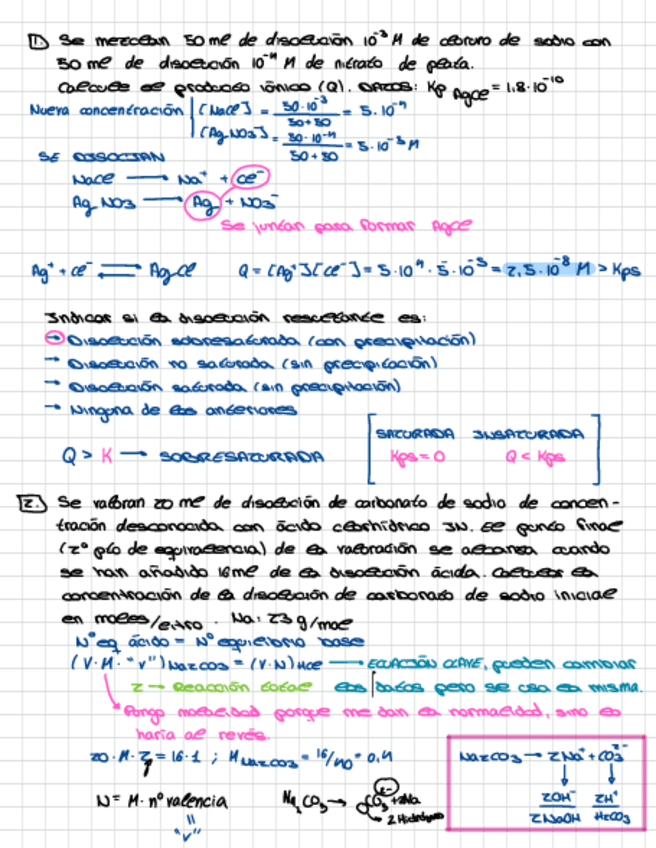 1. Se mezclan 50 ml de disolución 10⁻³ M de cloruro de sodio con
50 ml de disolución 10⁻⁴ M de nitrato de plata.
Calcule el producto iónico (Q). DATOS: Kp AgCl = 1,8·10⁻¹⁰
Nueva concentración [NaCl] = 50·10⁻³ / 50+50 = 5·10⁻⁴
[AgNO3] = 50·10⁻⁴ / 50+50 = 5·10⁻⁵ M
SE DISOCIAN
NaCl → Na⁺ + Cl⁻
AgNO3 → Ag + NO3⁻
Se juntan para formar AgCl
Ag⁺ + Cl⁻ ⇄ AgCl Q = [Ag⁺][Cl⁻] = 5·10⁻⁴ · 5·10⁻⁵ = 2,5·10⁻⁸ M > Kps
Indicar si la disolución resultante es:
→ Disolución sobresaturada (con precipitación)
→ Disolución no saturada (sin precipitación)
→ Disolución saturada (sin precipitación)
→ Ninguna de las anteriores
SATURADA INSATURADA
Q > K → SOBRESATURADA Kps = 0 Q < Kps
2. Se valoran 20 ml de disolución de carbonato de sodio de concen-
tración desconocida con ácido clorhídrico 1N. El punto final
(2º pto de equivalencia) de la valoración se alcanza cuando
se han añadido 16ml de la disolución ácida. Calcular la
concentración de la disolución de carbonato de sodio inicial
en moles/litro. Na: 23 g/mol
Nº eq ácido = Nº equilibrio base
(V·M·"v") Na2CO3 = (V·N) HCl → ECUACIÓN CLAVE, pueden cambiar
2 → Reacción total los datos pero se usa la misma.
Pongo molaridad porque me dan la normalidad, sino lo
haría al revés.
20·M·2 = 16·1 ; M Na2CO3 = 16/40 = 0,4
Na2CO3 → 2Na⁺ + CO3²⁻
N = M · nº valencia Na2CO3 → CO3 + 2Na
2OH⁻ 2H⁺
2NaOH H2CO3
2 Hidrógeno
"v"